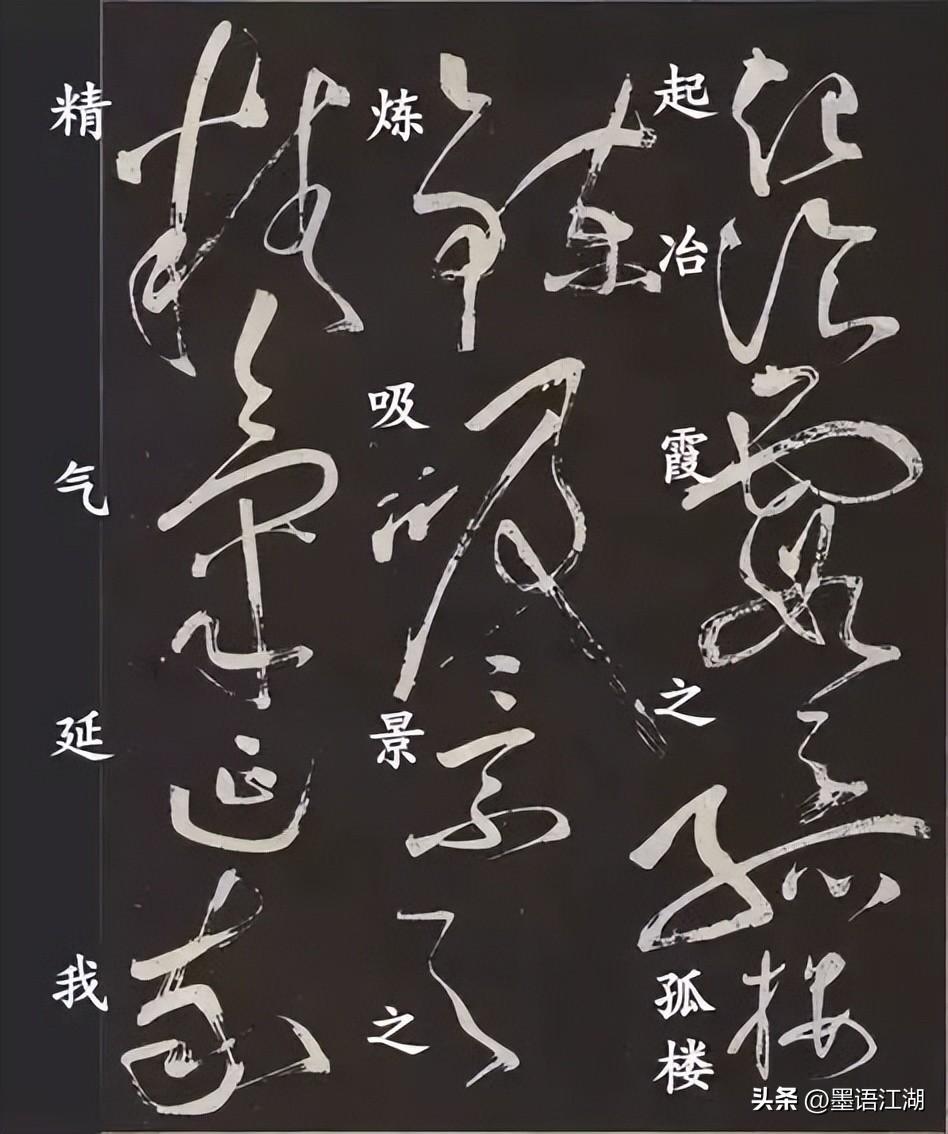 起冶霞之孤楼
炼吸景之
精气延我
头条 @墨语江湖